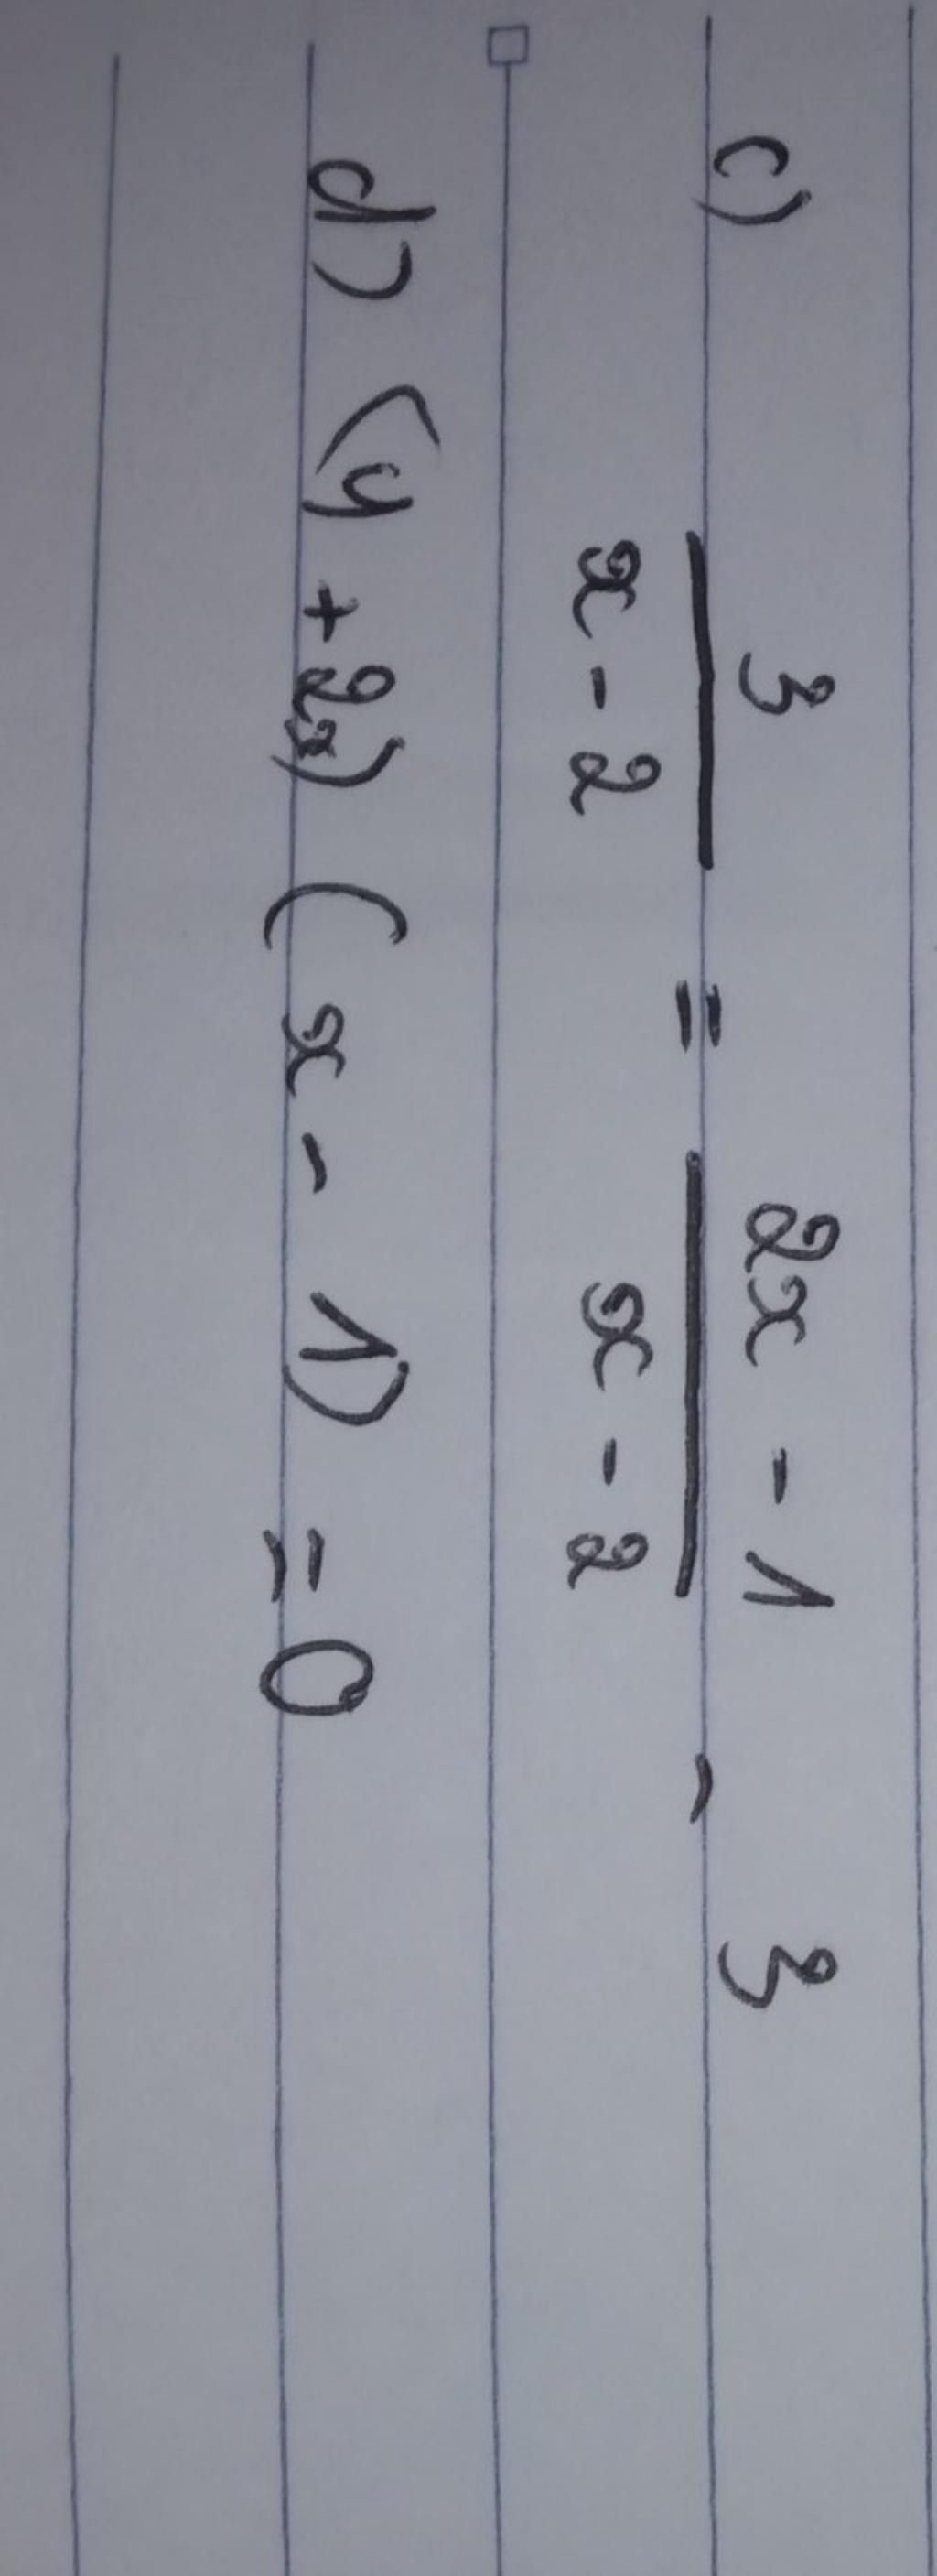 c) 3/(x - 2) = (2x - 1)/(x - 2) - 3
d) (y + 2x) (x - 1) = 0